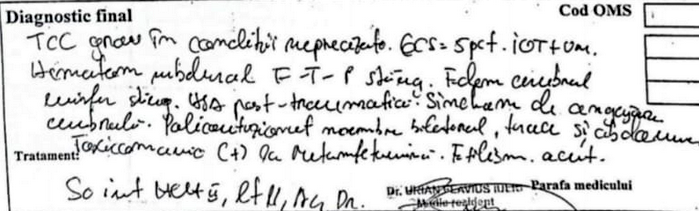 Diagnostic final Cod OMS
TCC grav în condiții neprecizate. GCS = 5 pct. IOT + VM.
Hematom subdural F-T-P stâng. Edem cerebral
emisfer stâng. HSA post-traumatică. Sindrom de angajare
cerebrală. Policontuzionat membre bilateral, torace și abdomen
Toxicomanie (+) la Metamfetamină. Etilism acut.
Tratament:
Sol int
Dr. URIAN FLAVIUS IULIU Parafa medicului
Medic rezident